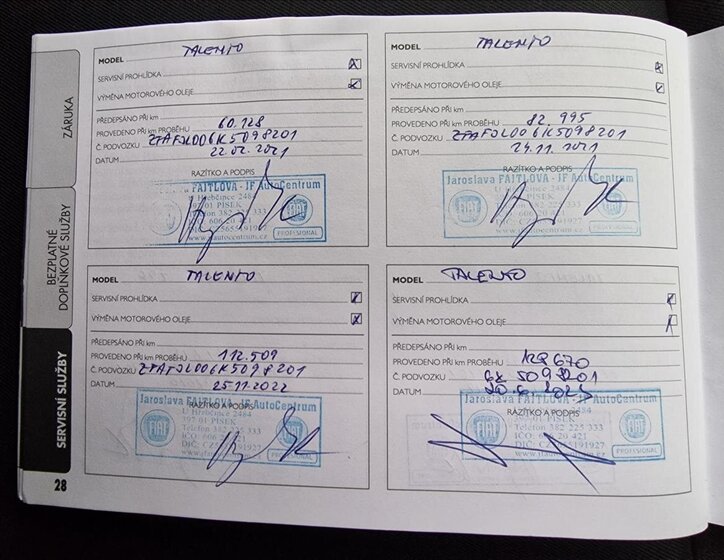 ZÁRUKA
BEZPLATNÉ
DOPLŇKOVÉ SLUŽBY
SERVISNÍ SLUŽBY
MODEL TALENTO
SERVISNÍ PROHLÍDKA
VÝMĚNA MOTOROVÉHO OLEJE
PŘEDEPSÁNO PŘI km
PROVEDENO PŘI km PROBĚHU 60.128
Č. PODVOZKU ZFAFJL006K5098201
DATUM 22.02.2021
RAZÍTKO A PODPIS
Jaroslava FAJTLOVA - JF AutoCentrum
U Hřebčince 2484
397 01 PÍSEK
Telefon 382 225 333
FIAT
PROFESSIONAL
MODEL TALENTO
SERVISNÍ PROHLÍDKA
VÝMĚNA MOTOROVÉHO OLEJE
PŘEDEPSÁNO PŘI km
PROVEDENO PŘI km PROBĚHU 82.995
Č. PODVOZKU ZFAFJL006K5098201
DATUM 24.11.2021
RAZÍTKO A PODPIS
Jaroslava FAJTLOVA - JF AutoCentrum
U Hřebčince 2484
397 01 PÍSEK
Telefon 382 225 333
FIAT
PROFESSIONAL
MODEL TALENTO
SERVISNÍ PROHLÍDKA
VÝMĚNA MOTOROVÉHO OLEJE
PŘEDEPSÁNO PŘI km
PROVEDENO PŘI km PROBĚHU 112.509
Č. PODVOZKU ZFAFJL006K5098201
DATUM 25.11.2022
RAZÍTKO A PODPIS
Jaroslava FAJTLOVA - JF AutoCentrum
U Hřebčince 2484
397 01 PÍSEK
Telefon 382 225 333
IČO: 606 20 421
DIČ: CZ5655191927
FIAT
PROFESSIONAL
MODEL TALENTO
SERVISNÍ PROHLÍDKA
VÝMĚNA MOTOROVÉHO OLEJE
PŘEDEPSÁNO PŘI km
PROVEDENO PŘI km PROBĚHU
Č. PODVOZKU 6K 5098201
DATUM
RAZÍTKO A PODPIS
Jaroslava FAJTLOVA - JF AutoCentrum
397 01 PÍSEK
Telefon 382 225 333
IČO: 606 20 421
DIČ: CZ5655191927
www.jfautocentrum.cz
FIAT
PROFESSIONAL
28